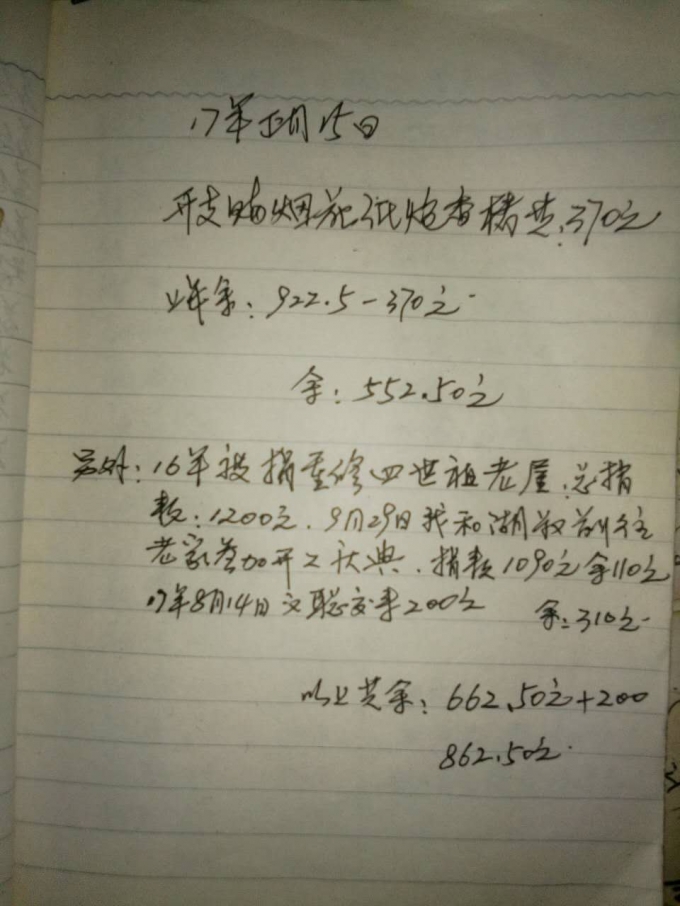 17年正月15日
开支购烟花纸炮香楮费:370元
上年余:922.5-370元
余:552.50元
另外:16年 捐重修四世祖老屋.总捐
款:1200元.9月29日我和湖 前往
老家参加开工庆典.捐款1090元余110元
17年8月14日文聪交来200元 余:310元
以上共余:662.50元+200
862.50元